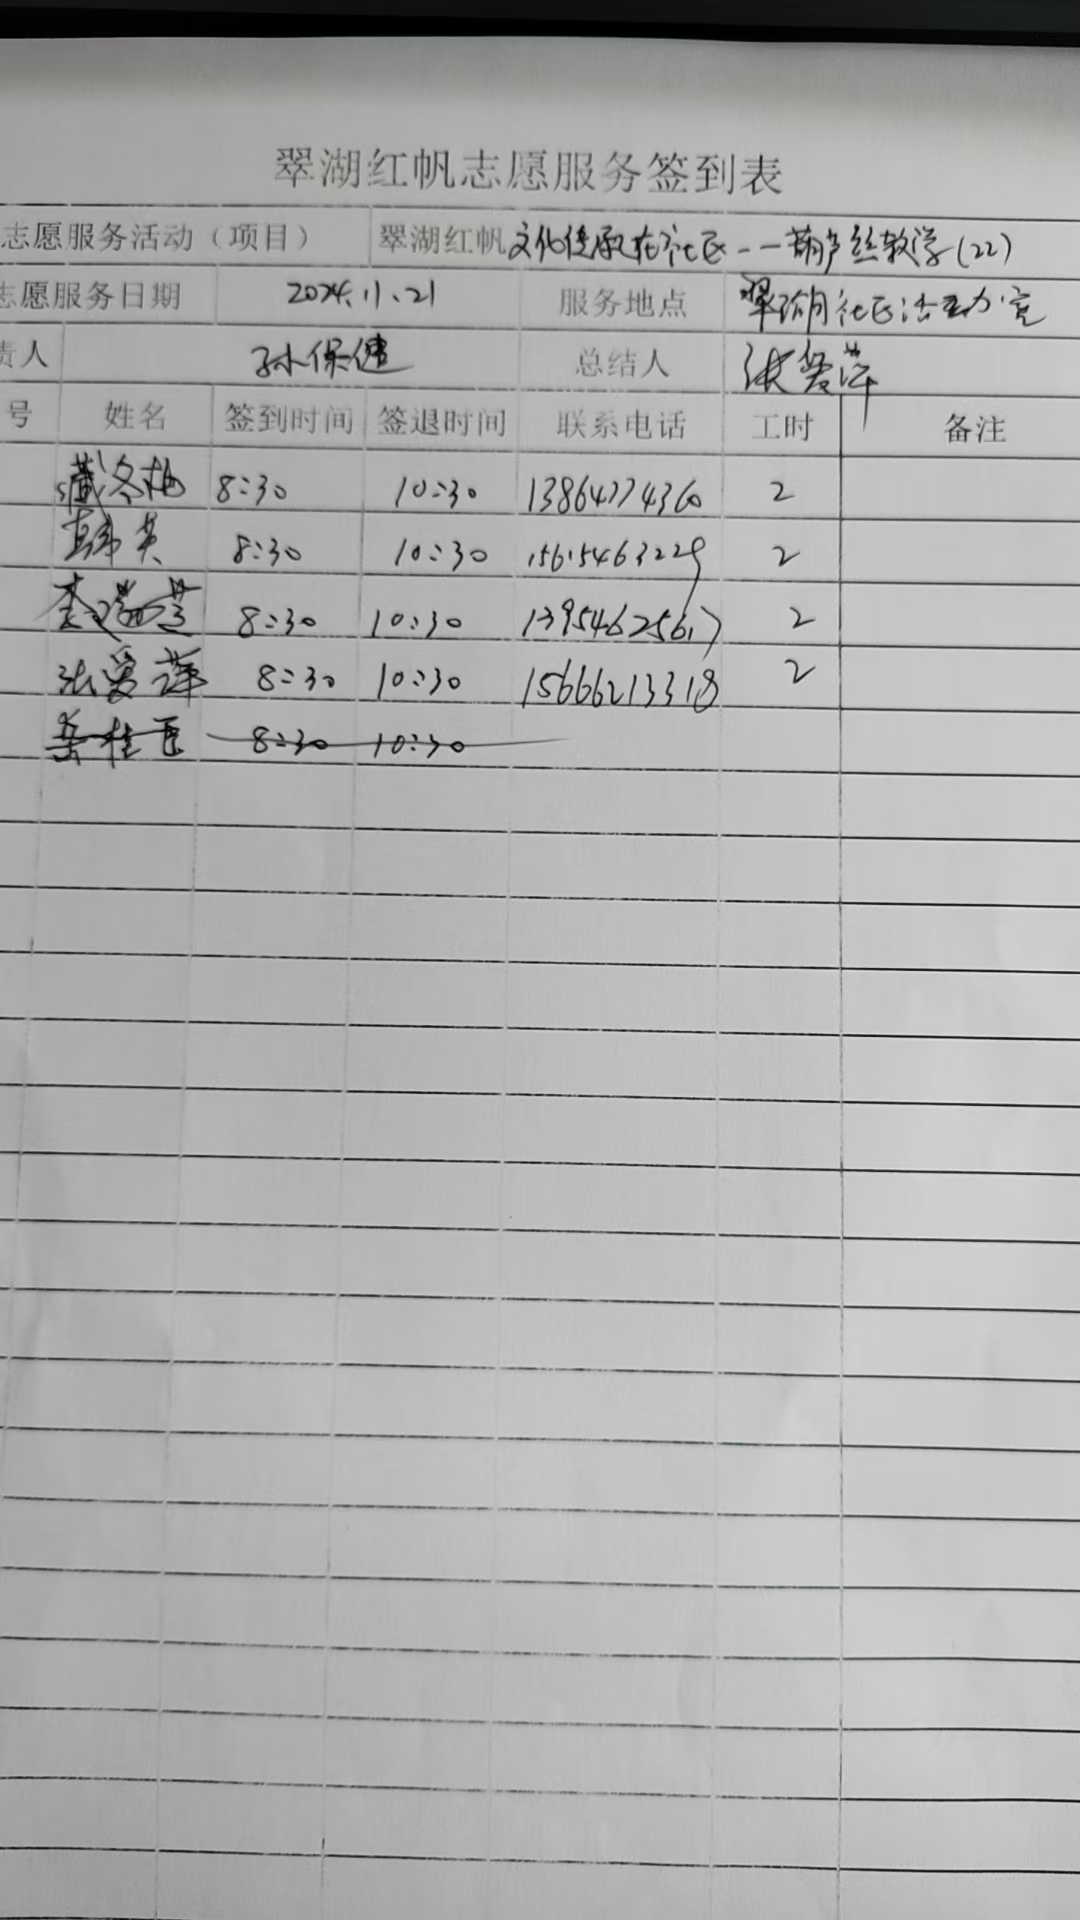 翠湖红帆志愿服务签到表
志愿服务活动（项目） 翠湖红帆文化传承在社区--葫芦丝教学(22)
志愿服务日期 2024.11.21 服务地点 翠湖社区活动室
责人 孙保健 总结人 张爱萍
号 姓名 签到时间 签退时间 联系电话 工时 备注
藏冬梅 8:30 10:30 13864774360 2
韩英 8:30 10:30 15615463229 2
李瑞兰 8:30 10:30 13954625617 2
张爱萍 8:30 10:30 15666213318 2
岳桂臣 8:30 10:30